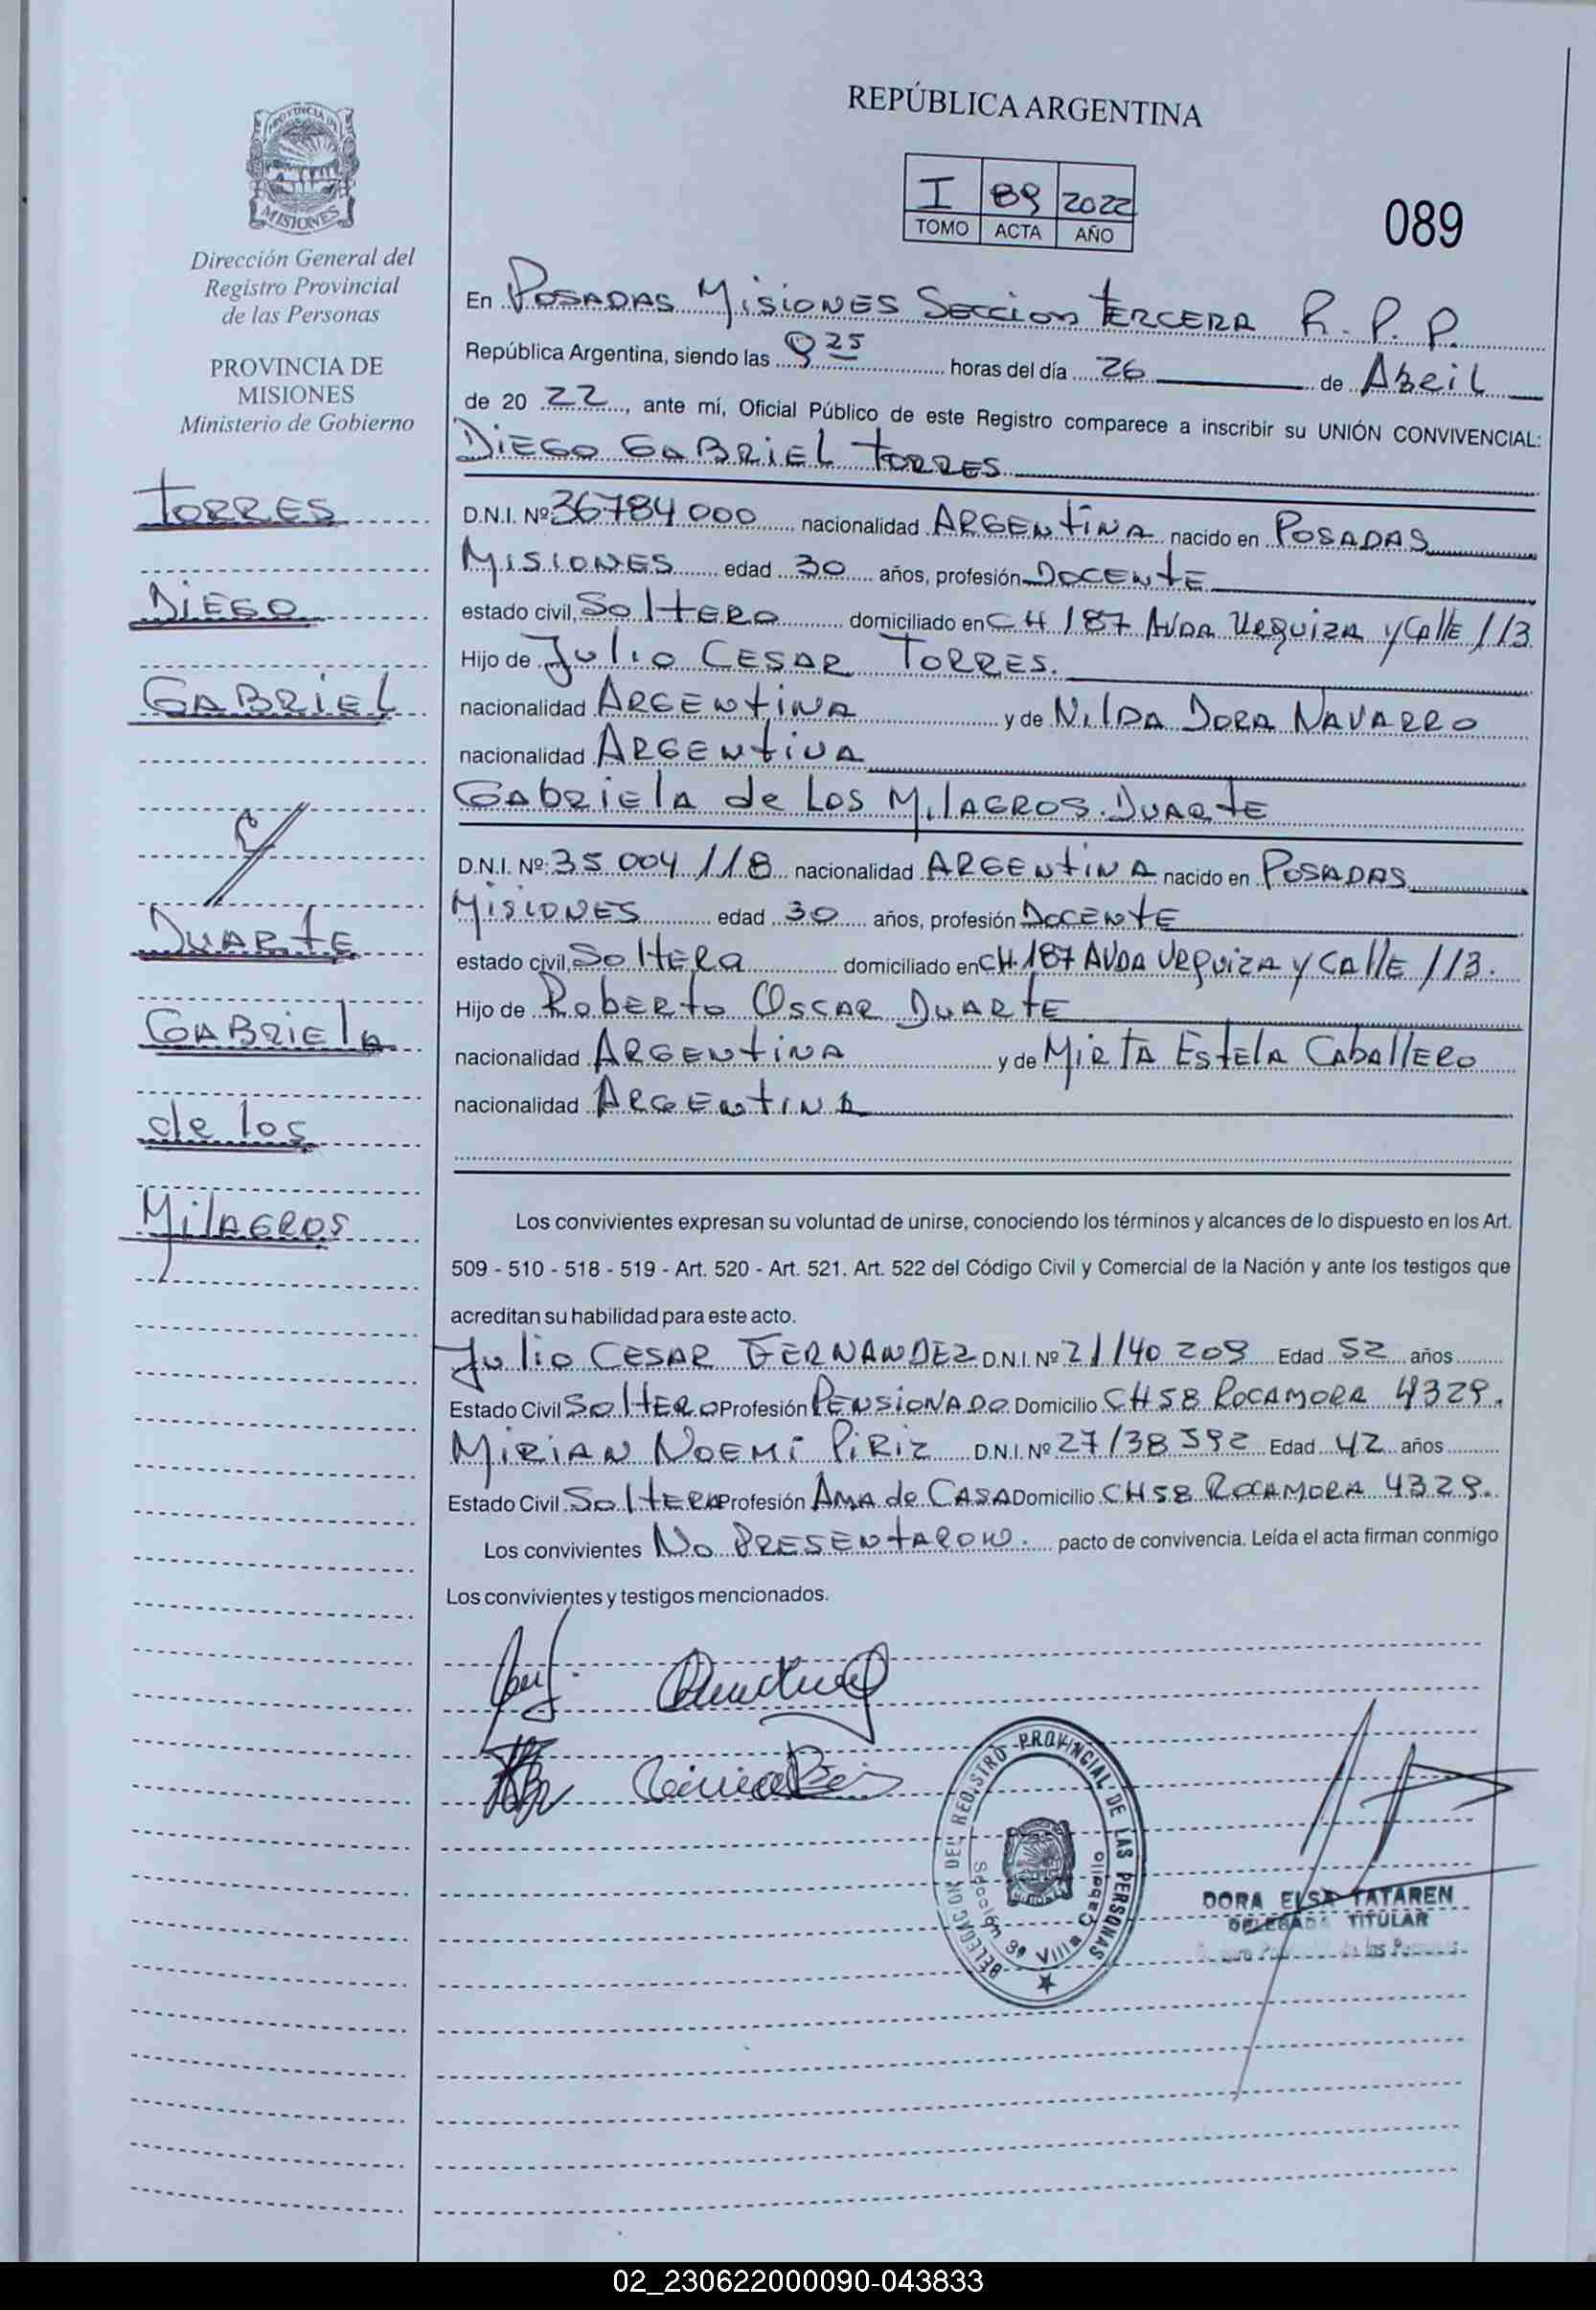 REPÚBLICA ARGENTINA
I 89 2022
TOMO ACTA AÑO
089
PROVINCIA DE MISIONES
Dirección General del
Registro Provincial
de las Personas
PROVINCIA DE
MISIONES
Ministerio de Gobierno
TORRES
DIEGO
GABRIEL
DUARTE
GABRIELA
de los
MilAGROS
En POSADAS MISIONES SECCION TERCERA R.P.P.
República Argentina, siendo las 9 25 horas del día 26 de ABRIL
de 20 22, ante mí, Oficial Público de este Registro comparece a inscribir su UNIÓN CONVIVENCIAL:
DIEGO GABRIEL TORRES
D.N.I. Nº 36784000 nacionalidad ARGENTINA nacido en POSADAS
MISIONES edad 30 años, profesión DOCENTE
estado civil, SOLTERO domiciliado en CH 187 AVDA URQUIZA y CALLE 113
Hijo de JULIO CESAR TORRES.
nacionalidad ARGENTINA y de NILDA DORA NAVARRO
nacionalidad ARGENTINA
GABRIELA de LOS MILAGROS DUARTE
D.N.I. Nº 35 004 118 nacionalidad ARGENTINA nacido en POSADAS
MISIONES edad 30 años, profesión DOCENTE
estado civil, SOLTERA domiciliado en CH 187 AVDA URQUIZA y CALLE 113.
Hijo de ROBERTO OSCAR DUARTE
nacionalidad ARGENTINA y de MIRTA ESTELA CABALLERO
nacionalidad ARGENTINA
Los convivientes expresan su voluntad de unirse, conociendo los términos y alcances de lo dispuesto en los Art.
509 - 510 - 518 - 519 - Art. 520 - Art. 521. Art. 522 del Código Civil y Comercial de la Nación y ante los testigos que
acreditan su habilidad para este acto.
JULIO CESAR FERNANDEZ D.N.I. Nº 21140 209 Edad 52 años
Estado Civil SOLTERO Profesión PENSIONADO Domicilio CH 58 ROCAMORA 4329.
MIRIAN NOEMI PIRIZ D.N.I. Nº 27138 592 Edad 42 años
Estado Civil SOLTERA Profesión AMA de CASA Domicilio CH 58 ROCAMORA 4329.
Los convivientes NO PRESENTARON. pacto de convivencia. Leída el acta firman conmigo
Los convivientes y testigos mencionados.
DELEGACION DEL REGISTRO PROVINCIAL DE LAS PERSONAS
Sección 3ª Villa Cabello
DORA ELSA TATAREN
DELEGADA TITULAR
de las Personas
02_230622000090-043833